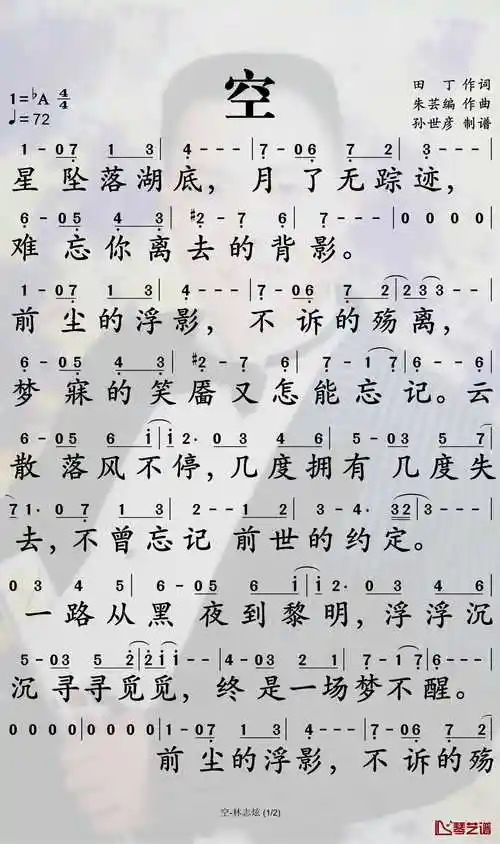 空
1=♭A 4/4
♩=72
田 丁 作词
朱芸编 作曲
孙世彦 制谱
1 - 07 1 3 | 4 - - - | 7 - 06 7 2 | 3 - - - |
星 坠落湖底，月了无踪迹，
6 - 05 4 3 | #2 - 7 6 | 7 - - - | 0 0 0 0 |
难 忘你离去的背影。
1 - 07 1 3 | 4 - - - | 7 - 06 7 2 | 2 3 3 - - |
前 尘的浮影，不诉的殇离，
6 - 05 4 3 | #2 - 7 6 | 7 - - 1 7 | 6 - - 6 |
梦 寐的笑靥又怎能忘记。云
6 - 05 6 i | i 2· 0 3 4 6 | 5 - 03 5 7 |
散落风不停，几度拥有几度失
7 1· 0 7 1 | 3 - - 02 | 1 - 2 3 | 3 - 4· 32 | 3 - - - |
去，不曾忘记 前世的约定。
0 3 4 5 | 6 - 05 6 i | i 2· 0 3 4 6 |
一路从黑夜到黎明，浮浮沉
5 - 03 5 2 | 2 i i - - | 4 - 03 4 6 | 7 - 1 7 | 6 - - - |
沉寻寻觅觅，终是一场梦不醒。
0 0 0 0 | 0 0 0 0 | 1 - 07 1 3 | 4 - - - | 7 - 06 7 2 |
前尘的浮影，不诉的殇
空-林志炫 (1/2)
琴艺谱